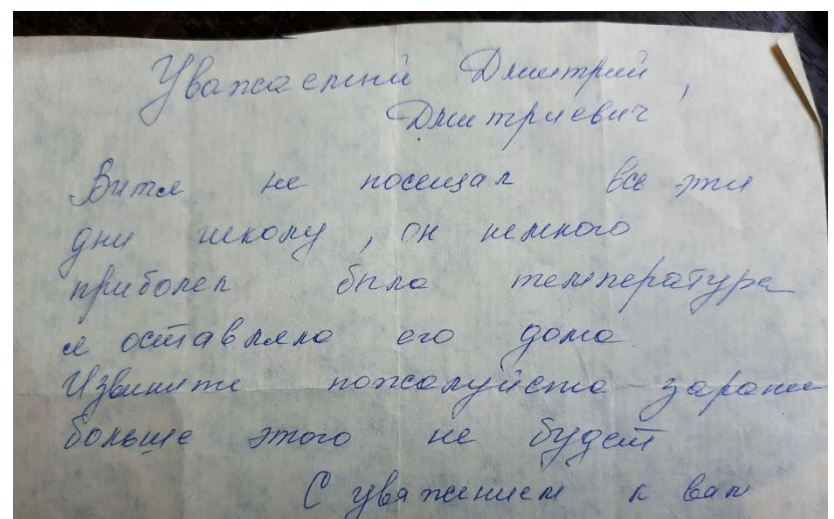 Уважаемый Дмитрий,
Дмитриевич
Витя не посещал все эти
дни школу, он немного
приболел была температура
я оставляла его дома
Извините пожалуйста зарание
больше этого не будет
С уважением к вам